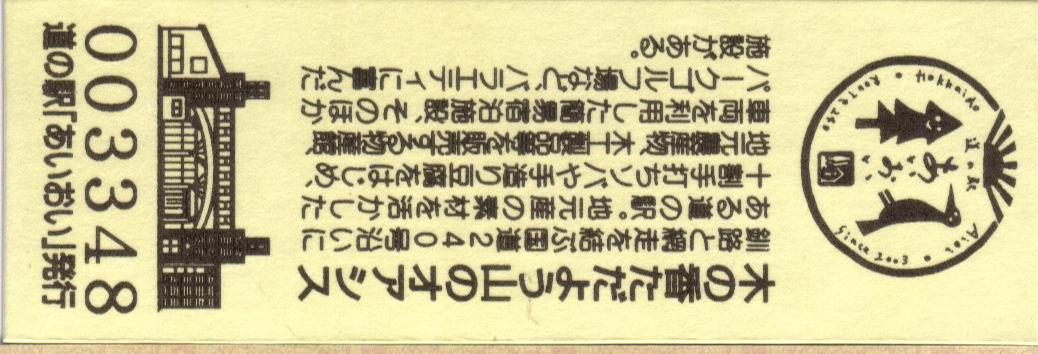 木の香ただよう山のオアシス
釧路と網走を結ぶ国道240号沿いに
ある道の駅。地元産の素材を活かした
十割手打ちソバや手造り豆腐をはじめ、
地元農産物、木工製品等を販売する物産館、
車両を利用した簡易宿泊施設、そのほか
パークゴルフ場など、バラエティに富んだ
施設がある。
003348
道の駅「あいおい」発行
Route 240 • Hokkaido
道の駅
あいおい
Since 2003 • Aioi